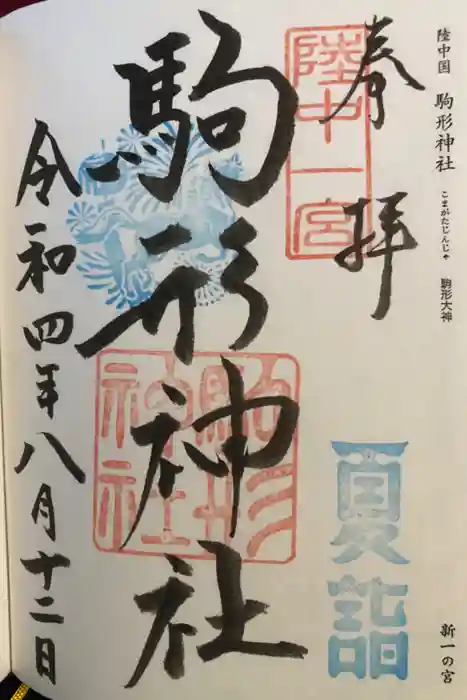 陸中国 駒形神社 こまがたじんじゃ 駒形大神
新一の宮
奉拝
陸中一宮
夏詣
駒形神社
駒形神社
令和四年八月十二日